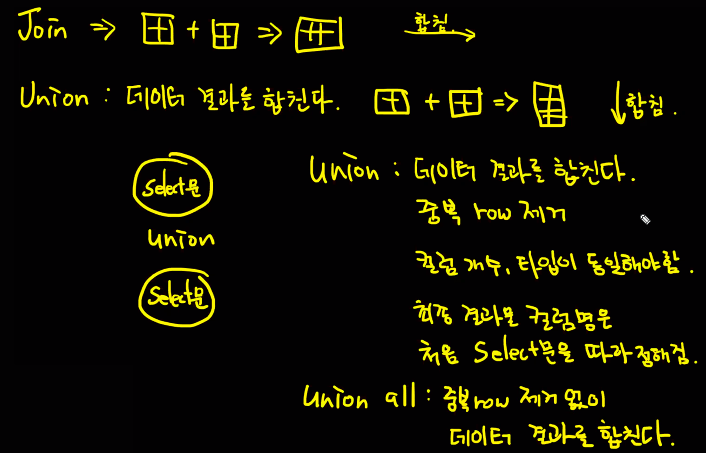 Join ⇒ + ⇒ 합침
Union : 데이터 결과를 합친다. + ⇒ ↓합침.
Select문
union
Select문
Union : 데이터 결과를 합친다.
중복 row 제거
컬럼 개수, 타입이 동일해야함.
최종 결과물 컬럼명은
처음 Select문을 따라 정해짐.
Union all : 중복row 제거 없이
데이터 결과를 합친다.